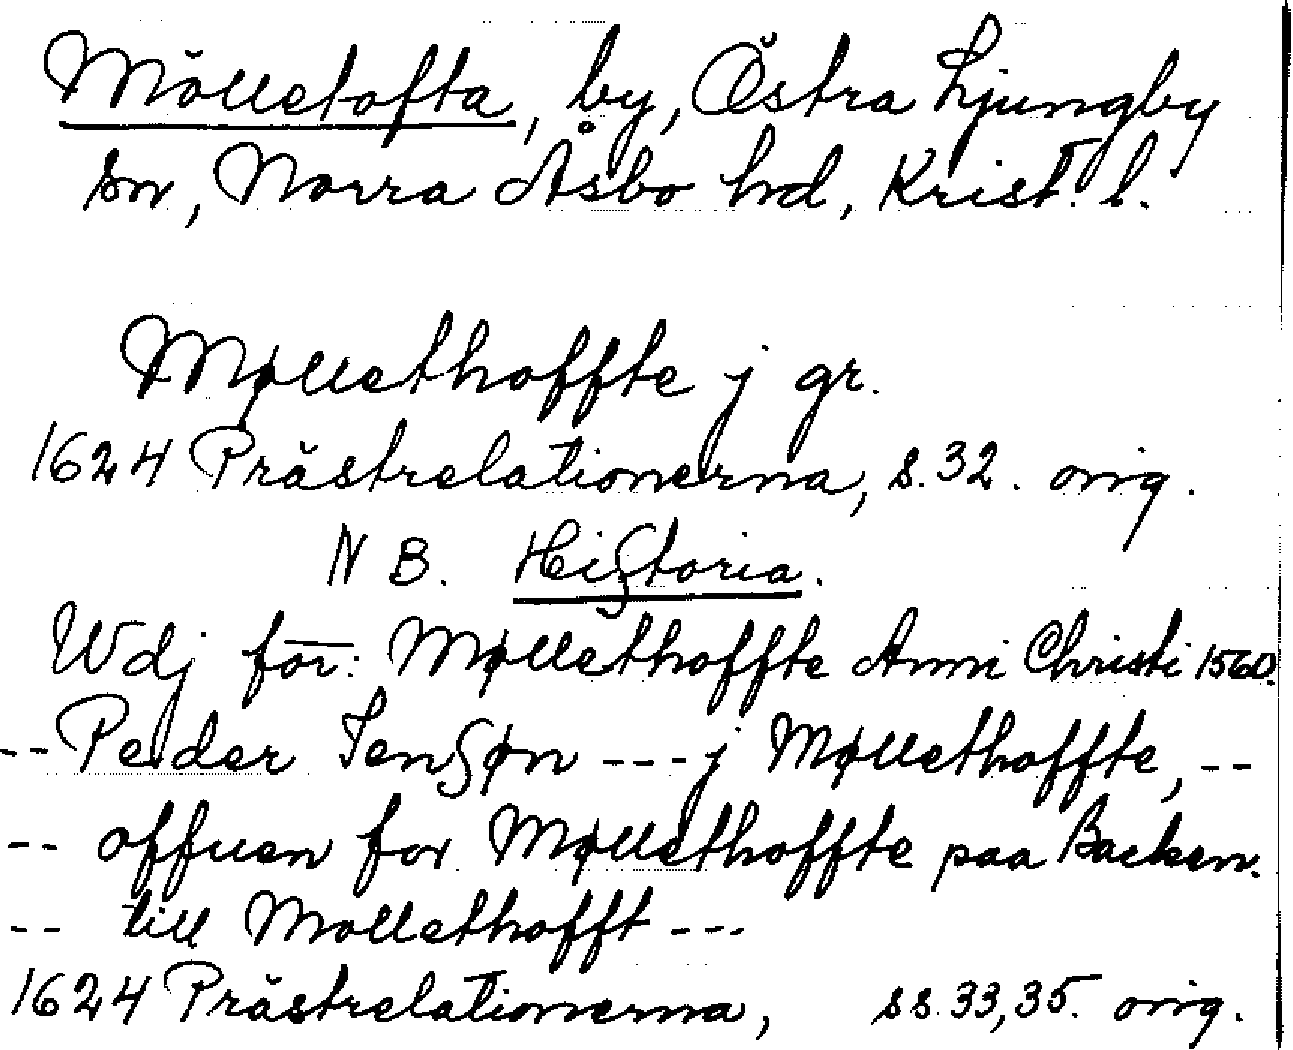 Mölletofta, by, Östra Ljungby
sn, Norra Åsbo hd, Krist. l.
Møllethoffte j gr.
1624 Prästrelationerna, s. 32. orig.
NB. Hißtoria.
Wdj for: Møllethoffte Anni Christi 1560.
-- Peder Jenßøn --- j Møllethoffte, --
-- offuen for Møllethoffte paa Backen.
-- till Mollethofft ---
1624 Prästrelationerna, ss. 33, 35. orig.